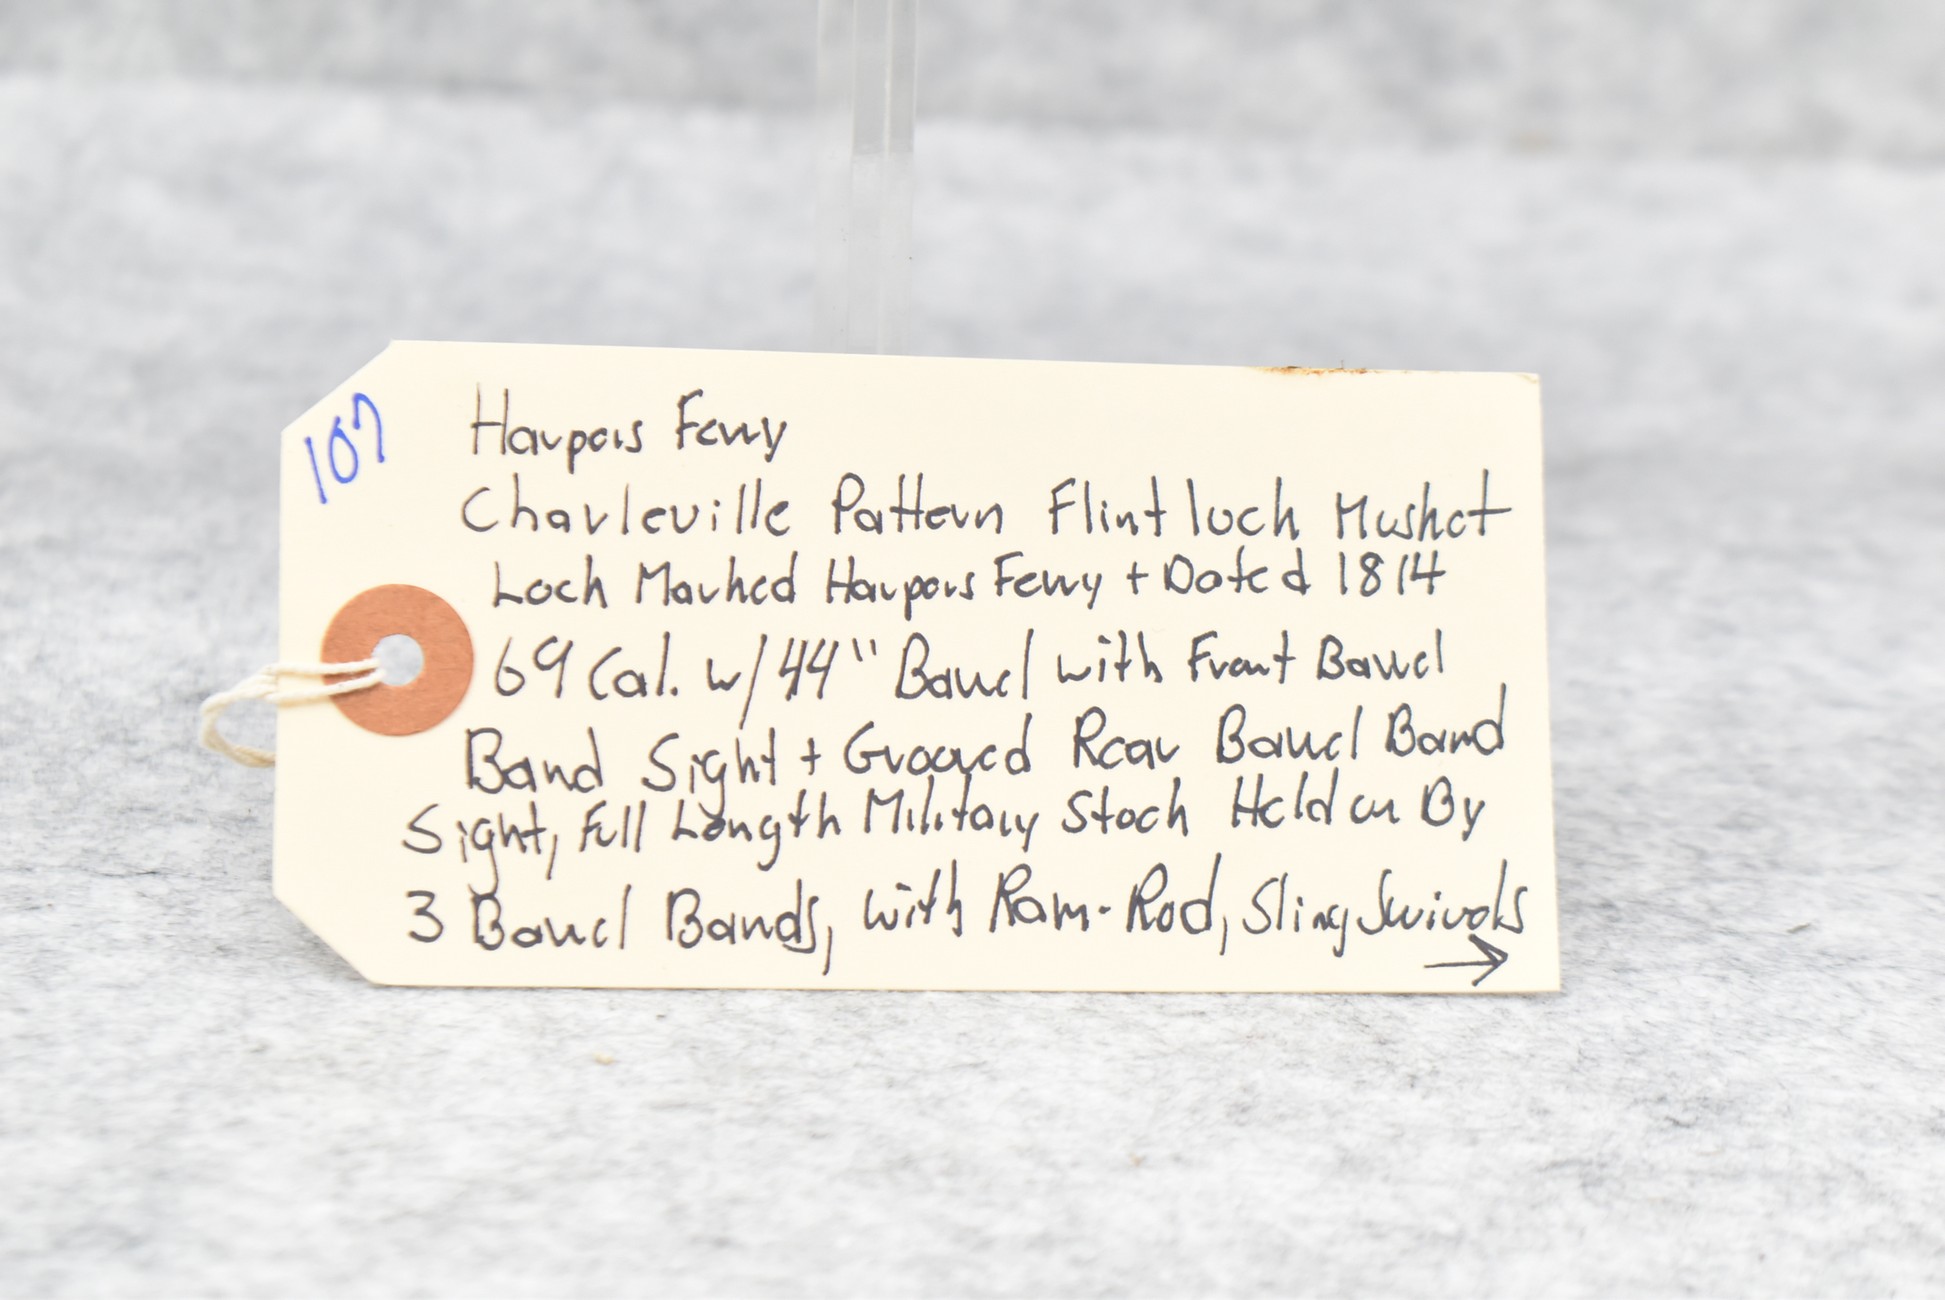 107
Harpers Ferry
Charleville Pattern Flintlock Musket
Lock Marked Harpers Ferry + Dated 1814
69 Cal. w/ 44" Barrel with Front Barrel
Band Sight + Grooved Rear Barrel Band
Sight, Full Length Military Stock Held on By
3 Barrel Bands, with Ram-Rod, Sling Swivels
→